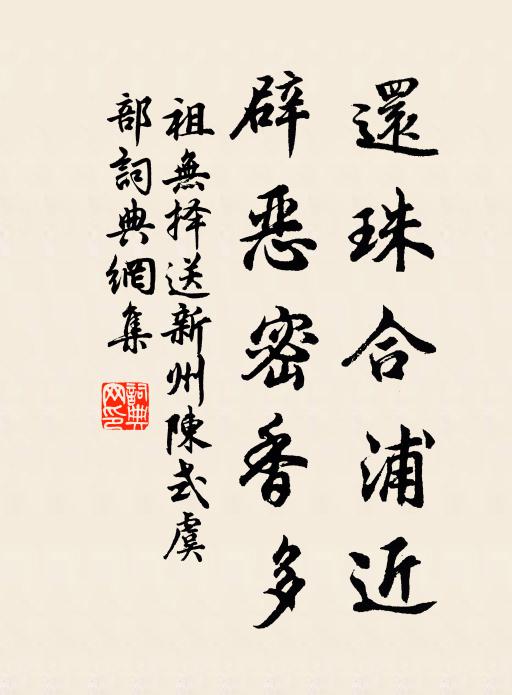 還珠合浦近
辟惡密香多
祖無择送新州陳式虞
部詞典網集
詞典網印